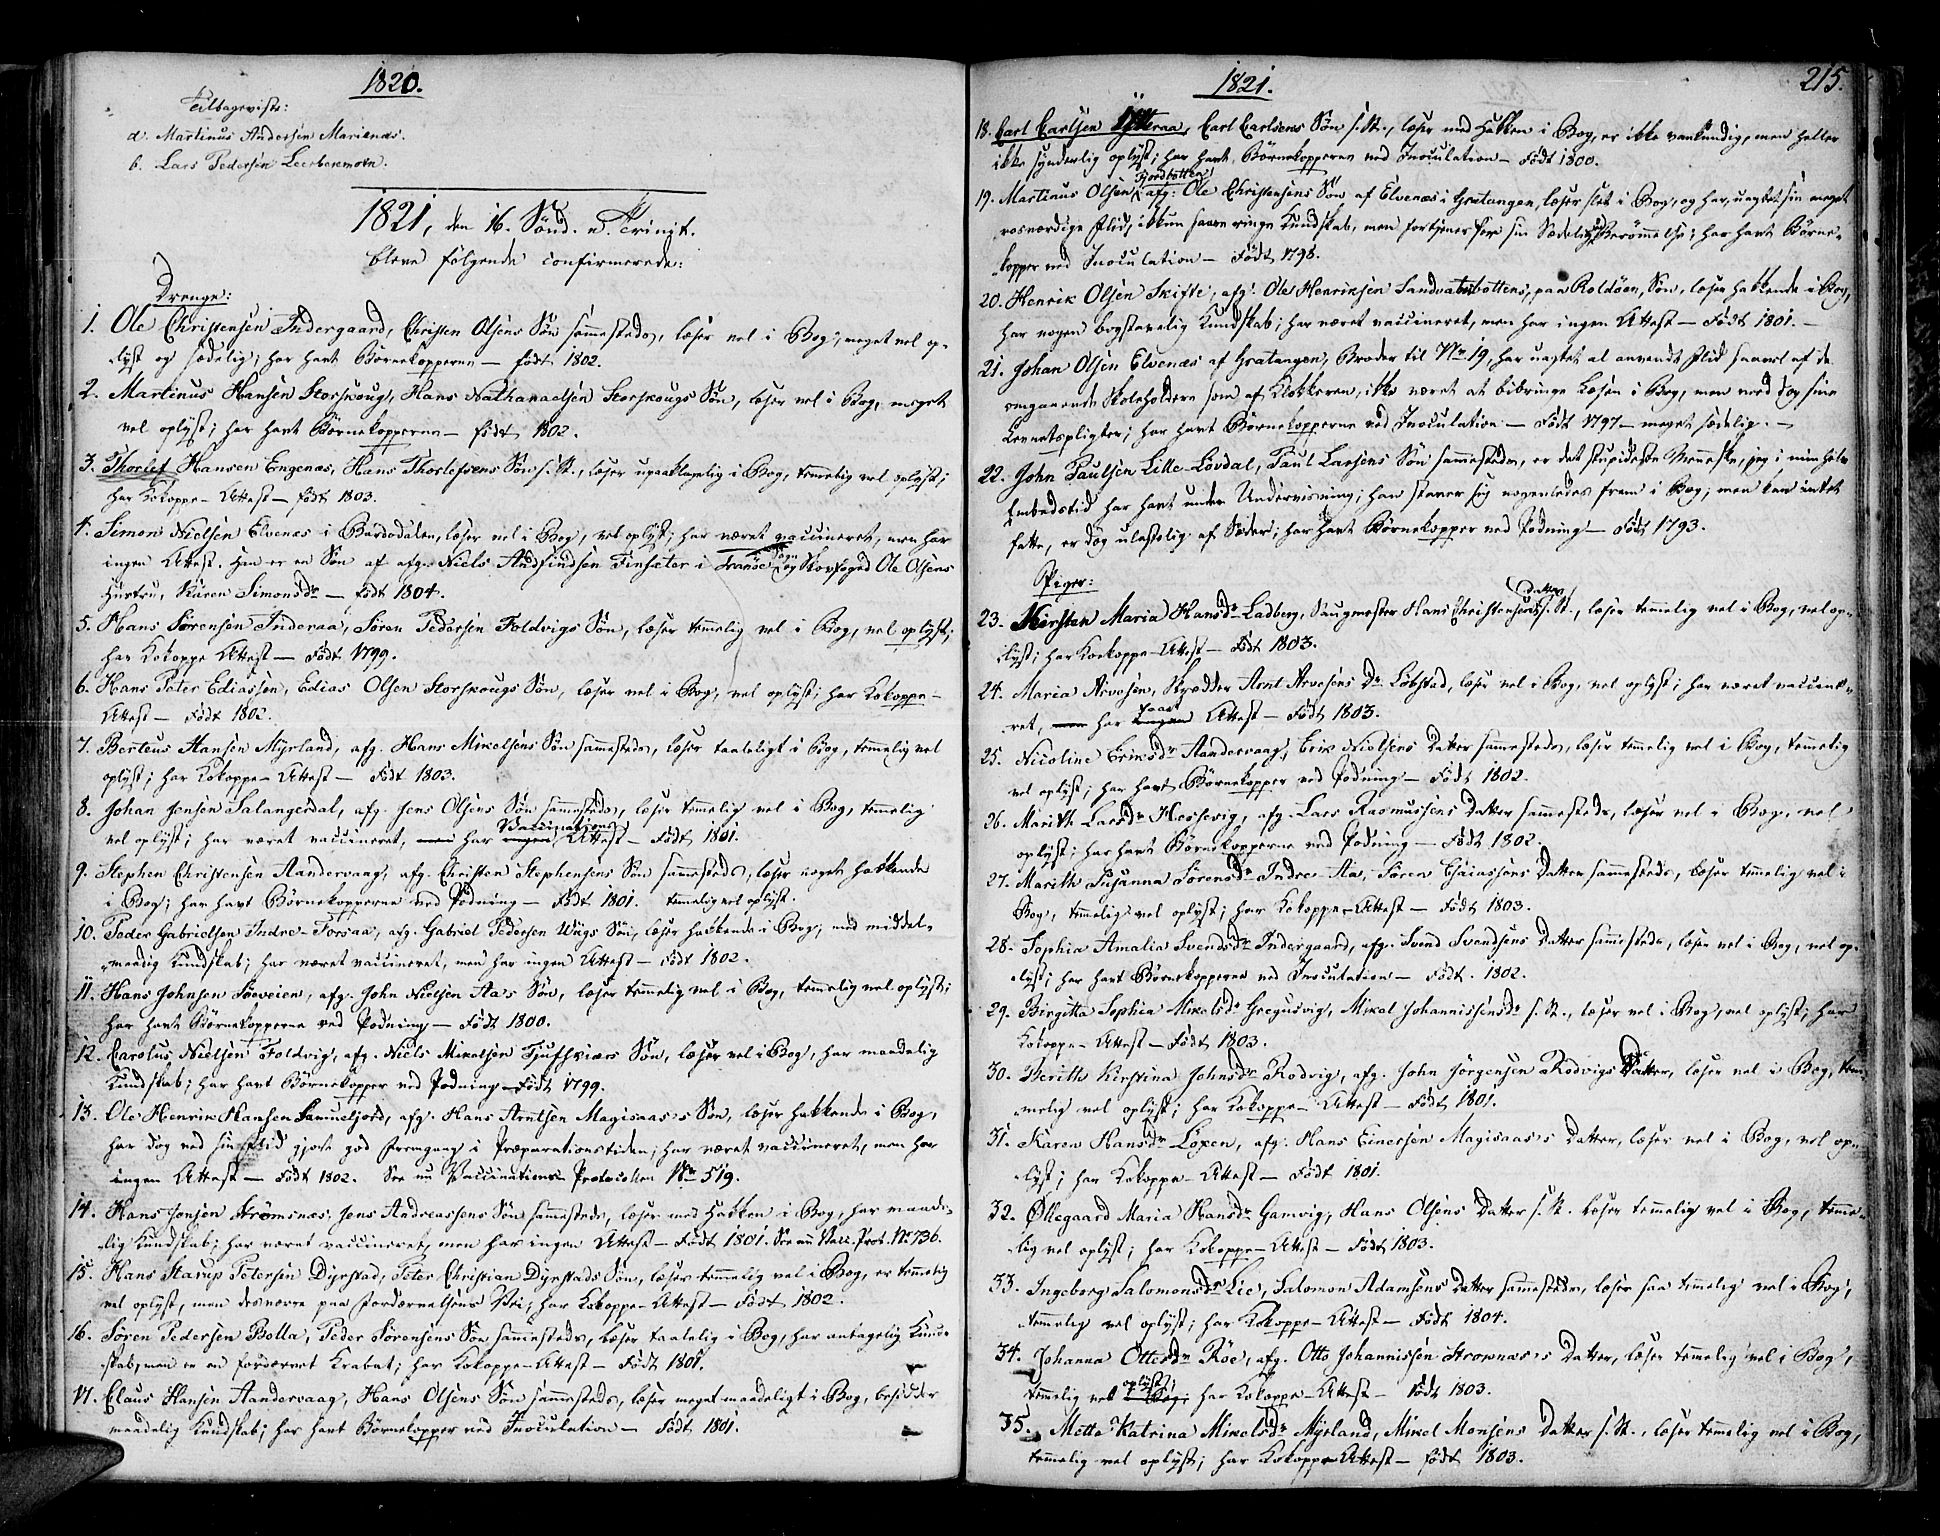 1820.
Tilbageviste:
a. Martinus Andersen Marienæs.
b. Lars Pedersen Leerbekmoen.
1821, den 16. Sönd. n. Trinit.
bleve følgende confirmerede:
Drenge:
1. Ole Christensen Indergaard, Christen Olsens Søn sammesteds, læser vel i Bog, meget vel op-
lyst og sædelig; har havt Börnekopperne — født 1802.
2. Martinus Hansen Storskoug, Hans Nathanaelsen Storskougs Søn, læser vel i Bog, meget
vel oplyst; har havt Börnekopperne — født 1802.
3. Thorlef Hansen Engenæs, Hans Thorlefsens Søn s. St., læser upaaklagelig i Bog, temmelig vel oplyst;
har Kokoppe-Attest — født 1803.
4. Simon Nielsen Elvenæs i Bardodalen, læser vel i Bog, vel oplyst; har været vaccineret, men har
ingen Attest. Han er en Søn af afg. Niels Andfindsen Finsæter i Tranöe Sogn og Skovfoged Ole Olsens
Hustru, Karen Simonsdr — født 1804.
5. Hans Sörensen Inderaa, Sören Pedersen Foldvigs Søn, læser temmelig vel i Bog, vel oplyst;
har Kokoppe Attest — Født 1799.
6. Hans Peter Ediassen, Edias Olsen Storskougs Søn, læser vel i Bog, vel oplyst; har Kokoppe-
Attest — Født 1802.
7. Berteus Hansen Myrland, afg. Hans Mikelsens Søn sammesteds, læser taaleligt i Bog, temmelig vel
oplyst; har Kokoppe-Attest — Født 1803.
8. Johan Jensen Salangsdal, afg. Jens Olsens Søn sammesteds, læser temmelig vel i Bog, temmelig
vel oplyst; har været vaccineret, men har ingen Vaccinations Attest — Født 1801.
9. Stephen Christensen Aandervaag, afg. Christen Stephensens Søn sammesteds, læser noget hakkende
i Bog; har havt Börnekopperne ved Podning — Født 1801. temmelig vel oplyst.
10. Peder Gabrielsen Indre-Forsaa, afg. Gabriel Pedersen Wigs Søn, læser hakkende i Bog, med middel-
maadig Kundskab; har været vaccineret, men har ingen Attest — Født 1802.
11. Hans Johnsen Söeveien, afg. John Nielsen Aa's Søn, læser temmelig vel i Bog, temmelig vel oplyst;
har havt Börnekopperne ved Podning — Født 1800.
12. Carolus Nielsen Foldvig, afg. Niels Mikelsen Tjufskiærs Søn, læser vel i Bog, har maadelig
Kundskab; har havt Börnekopper ved Podning — Født 1799.
13. Ole Henrik Hansen Sammelfjord, afg. Hans Arntsen Magisaas's Søn, læser hakkende i Bog,
har dog ved sin Flid gjort god Fremgang i Præparationstiden; har været vaccineret, men har
ingen Attest — Født 1802. See nu Vaccinations-Protocollen No 519.
14. Hans Jensen Strömsnæs, Jens Andreassens Søn sammesteds, læser med Hakken i Bog, har maade-
lig Kundskab; har været vaccineret, men har ingen Attest — Født 1801. See nu Vacc. Prot. No 736.
15. Hans Starup Petersen Dyrstad, Peter Christian Dyrstads Søn, læser temmelig vel i Bog, er temmelig
vel oplyst, men desværre paa Fordærvelsens Vei; har Kokoppe-Attest — Født 1802.
16. Sören Pedersen Bolla, Peder Sörensens Søn sammesteds, læser taalelig i Bog, har antagelig Kund-
skab, men er en fordærvet Krabat; har Kokoppe-Attest — Født 1801.
17. Claus Hansen Aandervaag, Hans Olsens Søn sammesteds, læser meget maadeligt i Bog, besidder
maadelig Kundskab; har havt Börnekopper ved Inoculation — Født 1801.
1821.
215.
18. Carl Carlsen Ytteraa, Carl Carlsens Søn s. St., læser med Hakken i Bog, er ikke vankundig, men heller
ikke synderlig oplyst; har havt Börnekopperne ved Inoculation — Født 1800.
19. Martinus Olsen Fjordbotten, afg: Ole Christensens Søn af Elvenæs i Gratangen, læser slet i Bog, og har, uagtet sin meget
rosværdige Flid, ikkun saare ringe Kundskab, men fortjener for sin Sædelighed Berömmelse; har havt Börne-
kopper ved Inoculation — Født 1798.
20. Henrik Olsen Skifte, afg. Ole Henriksen Sandvatsbottens, paa Roldöen, Søn, læser hakkende i Bog,
har nogen bogstavelig Kundskab; har været vaccineret, men har ingen Attest — Født 1801. —
21. Johan Olsen Elvenæs af Gratangen, Broder til No 19, har uagtet al anvendt Flid saavel af de
omgaaende Skoleholdere som af Klokkeren, ikke været at bibringe Læsen i Bog, men veed dog sine
Levnetspligter; har havt Börnekopperne ved Inoculation — Født 1797 — meget sædelig. —
22. John Paulsen Lille-Lövdal, Paul Larsens Søn sammesteds, er det stupideste Menneske, jeg i min hele
Embedstid har havt under Undervisning; han staver sig nogenledes frem i Bog; men kan intet
fatte, er dog ulastelig af Sæder; har havt Börnekopper ved Podning — Født 1793.
Piger:
23. Kirsten Maria Hansdr Ladberg, Saugmester Hans Christensens Datter s. St., læser temmelig vel i Bog, vel op-
lyst; har Kokoppe-Attest — Født 1803.
24. Maria Arvesen, Skrædder Arnt Arvesens Dr Löbstad, læser vel i Bog, vel oplyst; har været vaccine-
ret, men har ingen faaet Attest — Født 1803.
25. Nicoline Eriksdr Aandervaag, Erik Nielsens Datter sammesteds, læser temmelig vel i Bog, temmelig
vel oplyst; har havt Börnekopper ved Podning — Født 1802.
26. Marith Larsdr Hessevig, afg. Lars Rasmussens Datter sammesteds, læser vel i Bog, vel
oplyst; har havt Börnekopperne ved Podning — Født 1802.
27. Marith Susanna Sörensdr Indre-Aa, Sören Esaiassens Datter sammesteds, læser temmelig vel i
Bog, temmelig vel oplyst; har Kokoppe-Attest — Født 1803.
28. Sophia Amalia Svendsdr Indergaard, afg. Svend Svendsens Datter sammesteds, læser vel i Bog, vel op-
lyst; har havt Börnekopperne ved Inoculation — Født. 1802.
29. Birgitta Sophia Mikelsdr Gregusvig, Mikel Johannissensdr s. St., læser vel i Bog, vel oplyst; har
Kokoppe-Attest — Født 1803.
30. Berith Kirstina Johnsdr Rodvig, afg. John Jörgensen Rodvigs Datter, læser vel i Bog, tem-
melig vel oplyst; har Kokoppe-Attest — Født 1801.
31. Karen Hansdr Löxen, afg. Hans Einersen Magisaas's Datter, læser vel i Bog, vel op-
lyst; har Kokoppe-Attest — Født 1801.
32. Øllegaard Maria Hansdr Gamvig, Hans Olsens Datter s. St. læser temmelig vel i Bog, temme-
lig vel oplyst; har Kokoppe-Attest — Født 1803.
33. Ingeborg Salomonsdr Lie, Salomon Adamsens Datter sammesteds, læser saa temmelig vel i Bog,
temmelig vel oplyst; har Kokoppe-Attest — Født 1804.
34. Johanna Ottesdr Röe, afg. Otto Johannissen Stromnæs's Datter, læser temmelig vel i Bog,
temmelig vel Bog oplyst; har Kokoppe-Attest — Født 1803.
35. Mette Katrina Mikelsdr Myrland, Mikel Monsens Datter s. St., læser temmelig vel i Bog,
temmelig vel oplyst; har Kokoppe-Attest — født 1803.